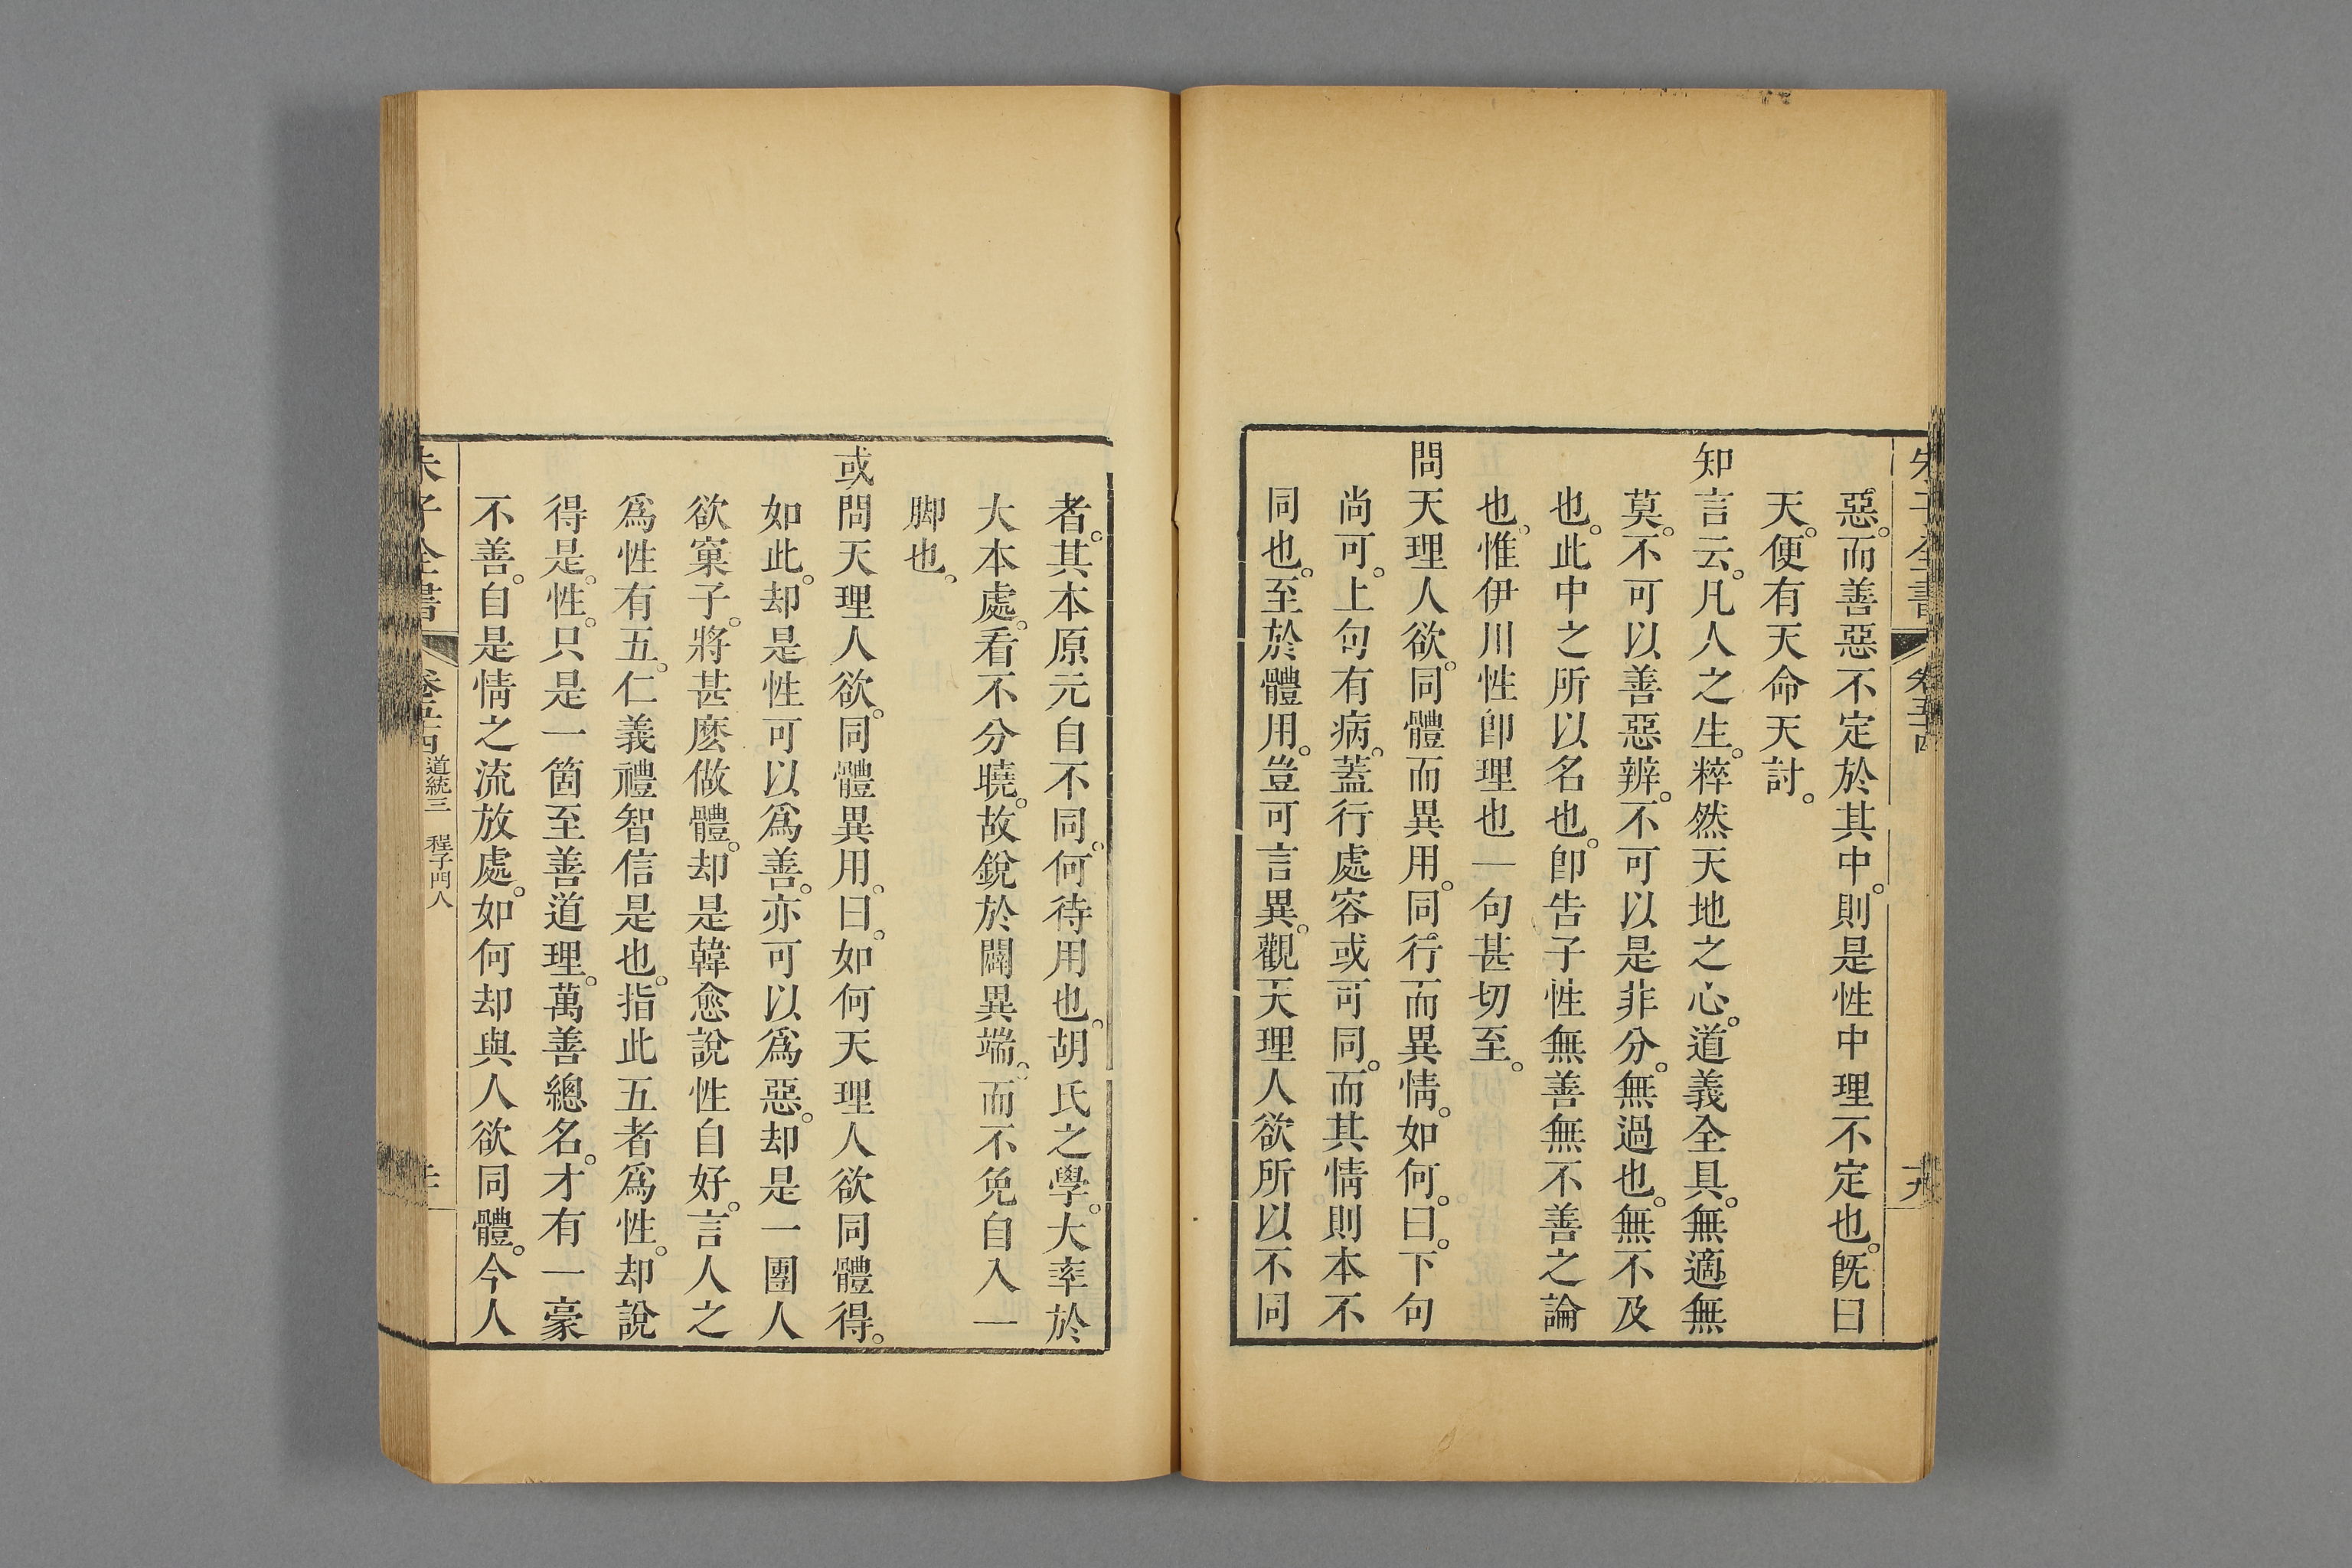 朱子全書 卷五十四 十九
惡。而善惡不定於其中。則是性中理不定也。旣曰
天。便有天命天討。
知言云。凡人之生。粹然天地之心。道義全具。無適無
莫。不可以善惡辨。不可以是非分。無過也。無不及
也。此中之所以名也。卽告子性無善無不善之論
也。惟伊川性卽理也一句甚切至。
問天理人欲。同體而異用。同行而異情。如何。曰。下句
尚可。上句有病。蓋行處容或可同。而其情則本不
同也。至於體用。豈可言異。觀天理人欲所以不同
者。其本原元自不同。何待用也。胡氏之學。大率於
大本處。看不分曉。故銳於闢異端。而不免自入一
脚也。
或問天理人欲。同體異用。曰。如何天理人欲同體得。
如此。却是性可以爲善。亦可以爲惡。却是一團人
欲窠子。將甚麽做體。却是韓愈說性自好。言人之
爲性有五。仁義禮智信是也。指此五者爲性。却說
得是。性。只是一箇至善道理。萬善總名。才有一豪
不善。自是情之流放處。如何却與人欲同體。今人
朱子全書 卷五十四 道統三 程子門人